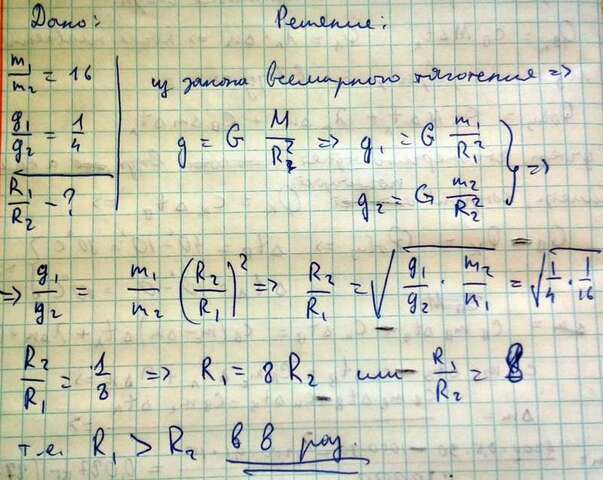 Дано: Решение:
m₁/m₂ = 16
g₁/g₂ = 1/4
R₁/R₂ - ?
из закона всемирного тяготения =>
g = G M/R² => g₁ = G m₁/R₁²
g₂ = G m₂/R₂² } =>
=> g₁/g₂ = m₁/m₂ (R₂/R₁)² => R₂/R₁ = √(g₁/g₂ · m₂/m₁) = √(1/4 · 1/16)
R₂/R₁ = 1/8 => R₁ = 8 R₂ или R₁/R₂ = 8
т.е. R₁ > R₂ в 8 раз.